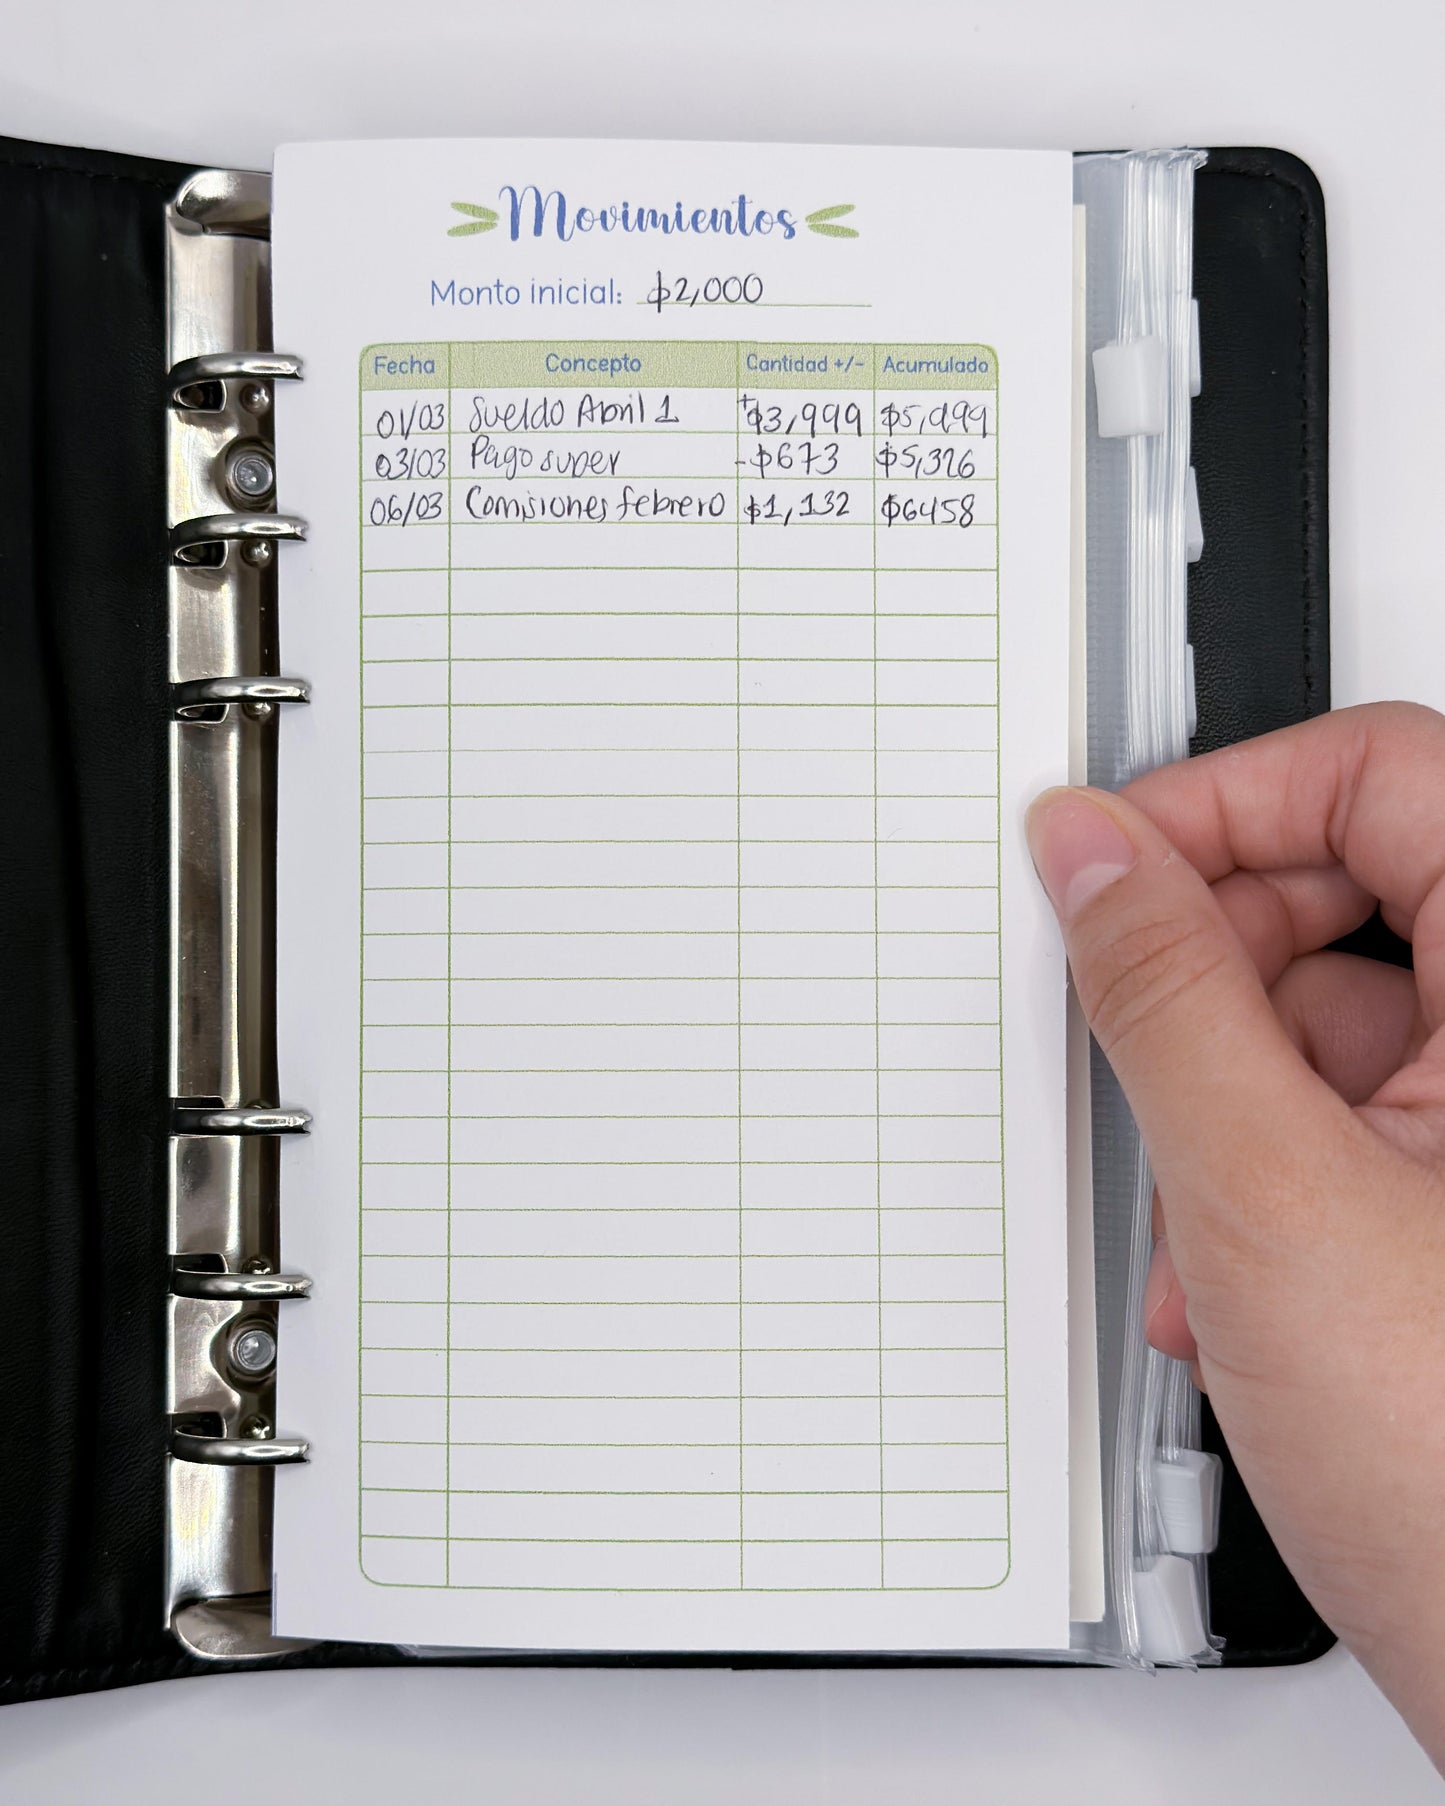 Movimientos
Monto inicial: $2,000
Fecha Concepto Cantidad +/- Acumulado
01/03 Sueldo Abril 1 +$3,999 $5,999
03/03 Pago super -$673 $5,326
06/03 Comisiones febrero $1,132 $6458